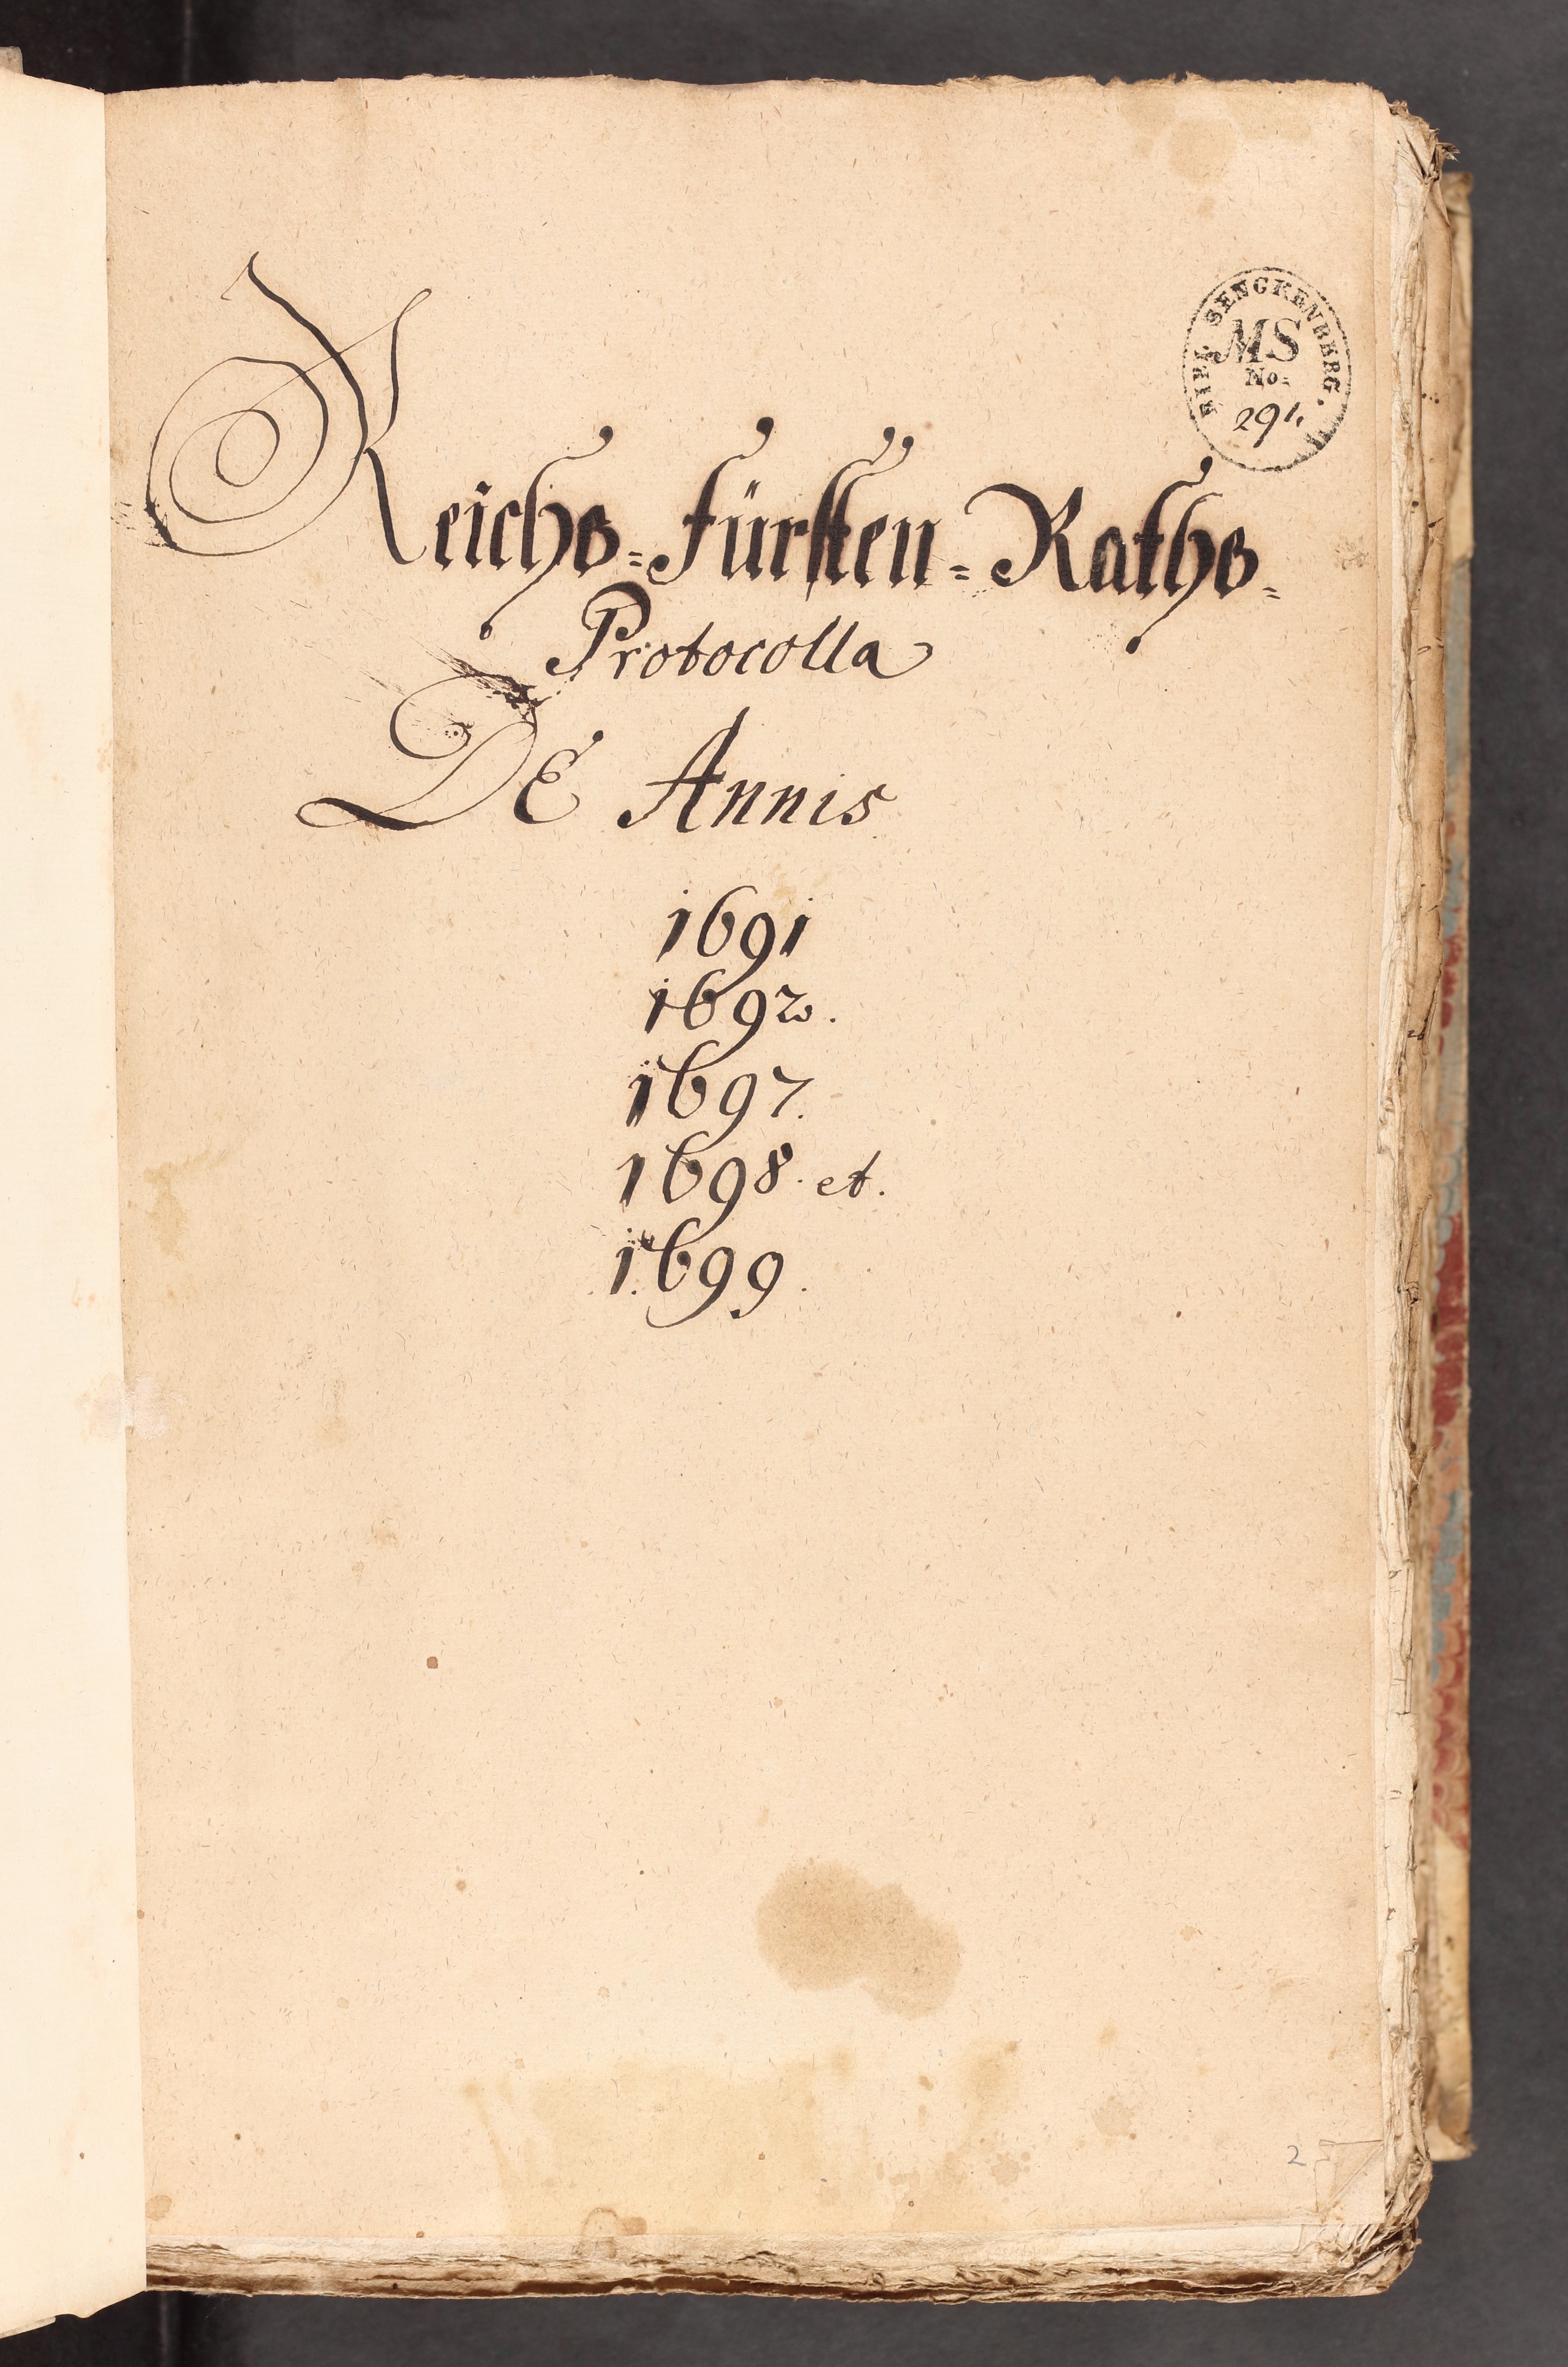 BIBL. SENCKENBERG.
MS
No:
291.
Reichs=Fürsten=Raths=
Protocolla
De Annis
1691
1692.
1697.
1698. et.
1699.
2